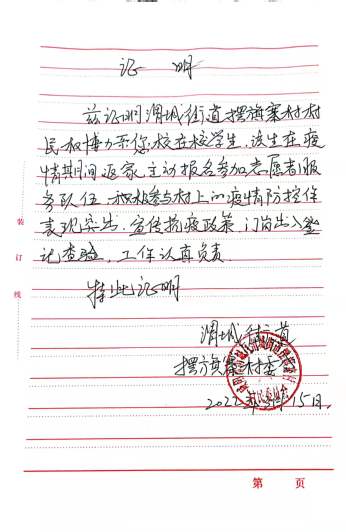 证 明
兹证明渭城街道摆旗寨村村
民权博力系您校在校学生,该生在疫
情期间返家,主动报名参加志愿者服
务队伍,积极参与村上的疫情防控任
表现突出,宣传抗疫政策,门岗出入登
记查验,工作认真负责.
特此证明
装
订
线
渭城街道
摆旗寨村委
15日.
第 页